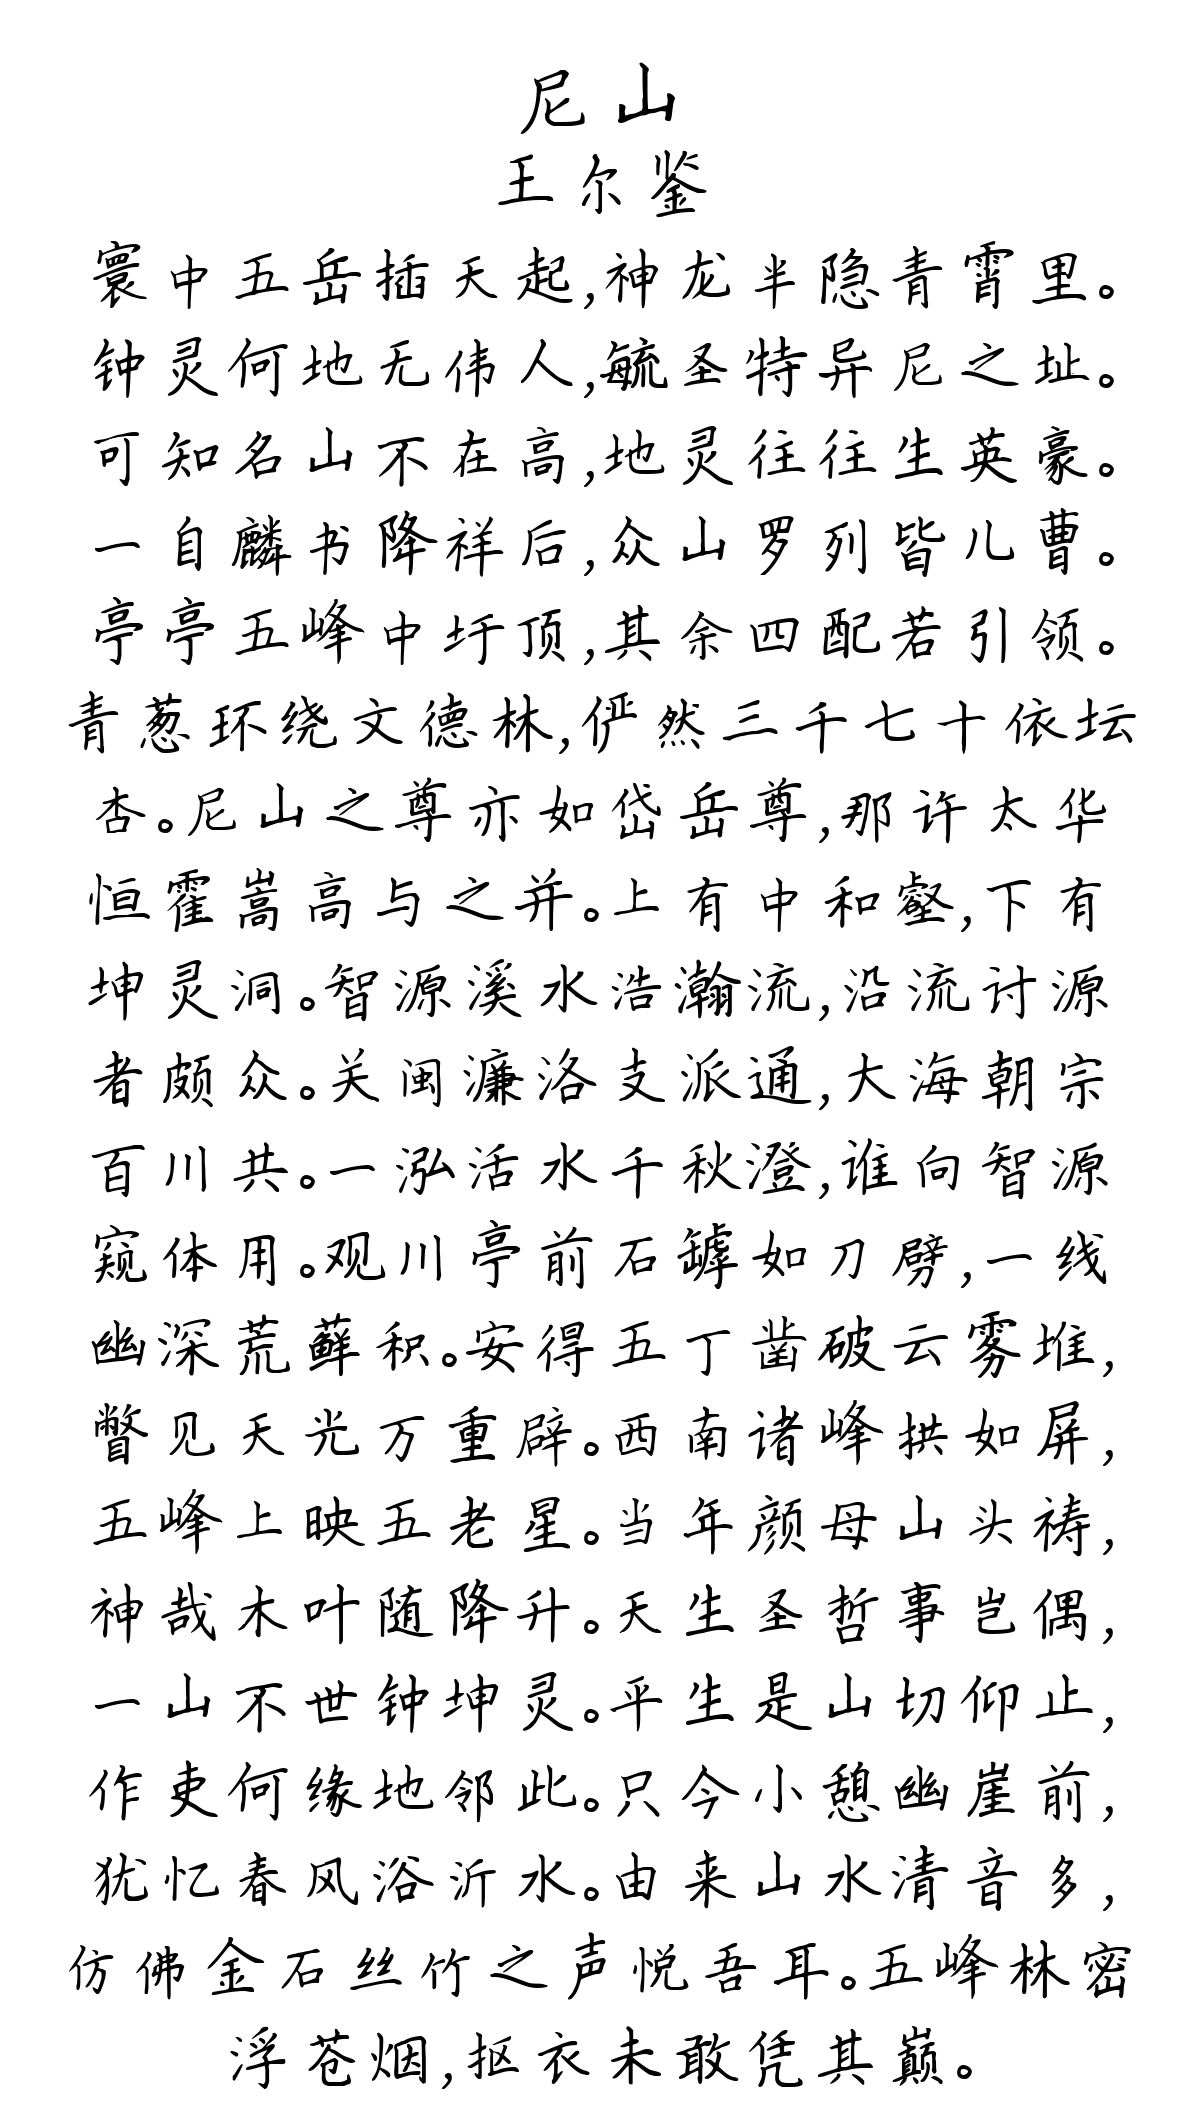 尼山
王尔鉴
寰中五岳插天起,神龙半隐青霄里。
钟灵何地无伟人,毓圣特异尼之址。
可知名山不在高,地灵往往生英豪。
一自麟书降祥后,众山罗列皆儿曹。
亭亭五峰中圩顶,其余四配若引领。
青葱环绕文德林,俨然三千七十依坛
杏。尼山之尊亦如岱岳尊,那许太华
恒霍嵩高与之并。上有中和壑,下有
坤灵洞。智源溪水浩瀚流,沿流讨源
者颇众。关闽濂洛支派通,大海朝宗
百川共。一泓活水千秋澄,谁向智源
窥体用。观川亭前石罅如刀劈,一线
幽深荒藓积。安得五丁凿破云雾堆,
瞥见天光万重辟。西南诸峰拱如屏,
五峰上映五老星。当年颜母山头祷,
神哉木叶随降升。天生圣哲事岂偶,
一山不世钟坤灵。平生是山切仰止,
作吏何缘地邻此。只今小憩幽崖前,
犹忆春风浴沂水。由来山水清音多,
仿佛金石丝竹之声悦吾耳。五峰林密
浮苍烟,抠衣未敢凭其巅。